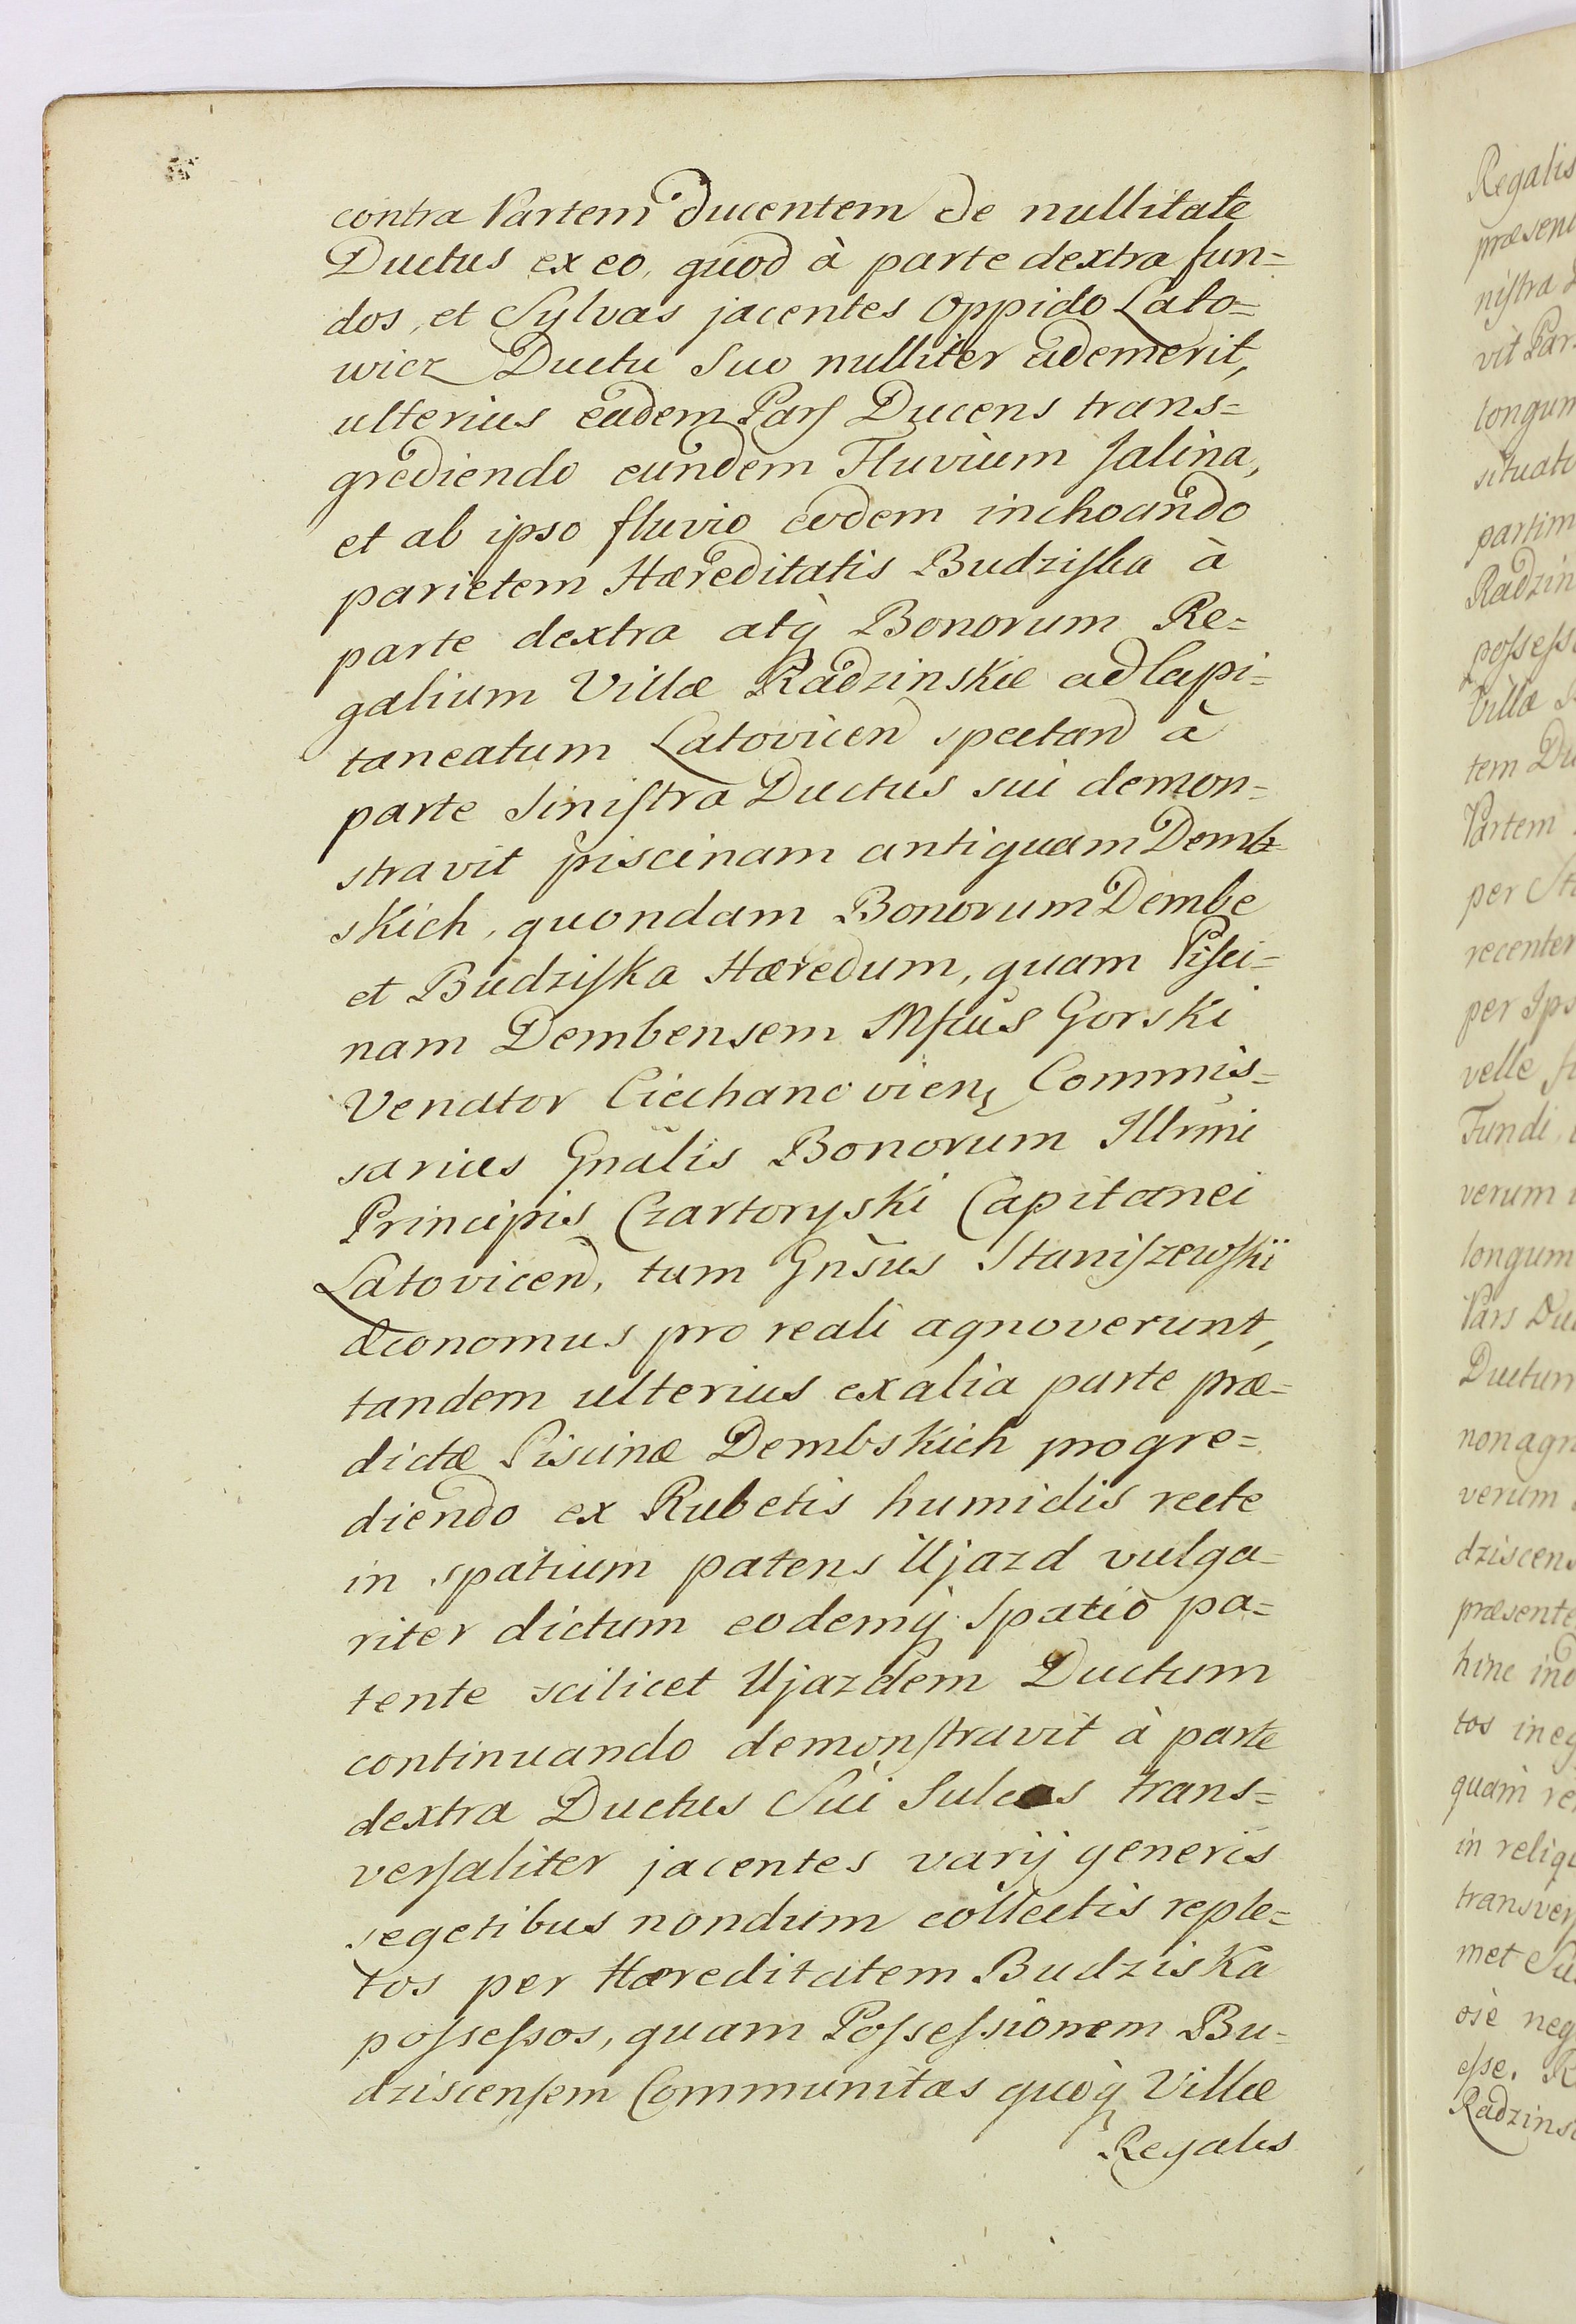 contra Partem ducentem de nullitate
Ductus ex eo, quod à parte dextra fun=
dos, et Sylvas jacentes Oppido Lato=
wicz Ductu Suo nulliter ademerit,
ulterius eadem Pars Ducens trans=
grediendo eundem Fluvium Salina,
et ab ipso fluvio eodem inchoando
parietem Hæreditatis Budziska à
parte dextra atq́ Bonorum Re=
galium Villæ Radzinskie ad Capi=
taneatum Latovicen̄ spectan̄ à
parte Sinistra Ductus sui demon=
stravit piscinam antiquam Demb=
skich, quondam Bonorum Dembe
et Budziska Hæredum, quam Pisci=
nam Dembensem Mfcus Gorski
Venator Ciechanovien, Commis=
sarius Gnalis Bonorum Illrmi
Principis Czartoryski Capitanei
Latovicen̄, tum Gnsus Staniszewski
Œconomus pro reali agnoverunt,
tandem ulterius ex alia parte præ=
dictæ Piscinæ Dembskich progre=
diendo ex Rubetis humidis recte
in spatium patens Ujazd vulga=
riter dictum eodemq́ Spatio pa=
tente scilicet Ujazdem Ductum
continuando demonstravit à parte
dextra Ductus Sui Sulcos trans=
versaliter jacentes varij generis
segetibus nondum collectis reple=
tos per Hæreditatem Budziska
possessos, quam Possessionem Bu=
dziscensem Communitas quoq́ Villæ
Regalis
Regalis
nistra
vit Par
longum
partim
Radzin
Villæ
tem Du
Partem
recenter
velle
Fundi
verum
longum
Pars Du
Ductum
non agn
verum
dziscens
præsente
hinc
tos
quam
in